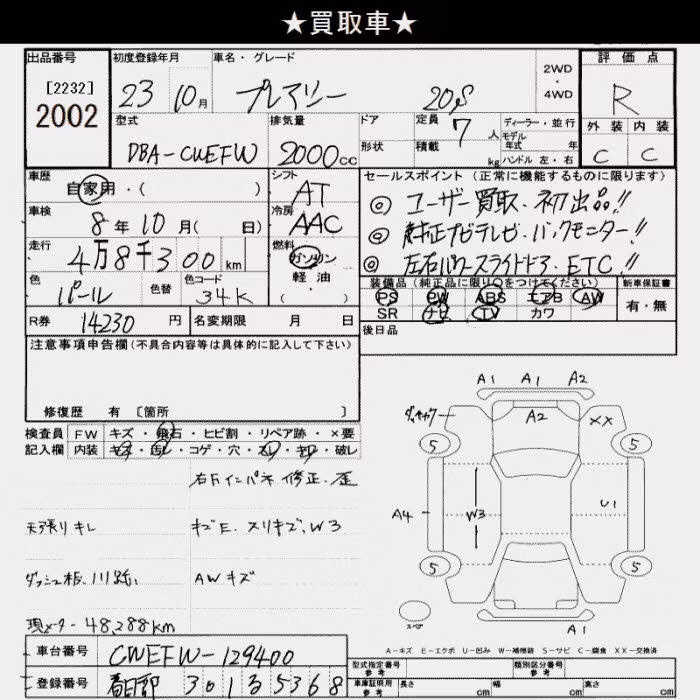 ★買取車★
出品番号
[2232]
2002
初度登録年月
23 10月
車名・グレード
プレマシー 20S
2WD
・
4WD
評価点
R
型式
DBA-CWEFW
排気量
2000cc
ドア
形状
定員 7人
積載 kg
ディーラー・並行
モデル
年式 年
ハンドル 左・右
外装 内装
C C
車歴
自家用・( )
シフト
AT
セールスポイント(正常に機能するものに限ります)
◎ ユーザー買取・初出品!!
◎ 純正ナビテレビ・バックモニター!!
◎ 左右パワースライドドア・ETC!!
車検
8年10月( 日)
冷房
AAC
走行
4万8千300km
燃料
ガソリン
軽油
( )
色
パール
色替
色コード
34K
装備品(純正品に限り○をつけてください)
PS PW ABS エアB AW
SR ナビ TV カワ
新車保証書
有・無
R券 14230円
名変期限 月 日
後日品
注意事項申告欄(不具合内容等は具体的に記入して下さい)
修復歴 有 [箇所 ]
検査員
記入欄
FW キズ・飛石・ヒビ割・リペア跡・×要
内装 キズ・汚レ・コゲ・穴・スレ・キレ・破レ
右Fインパネ修正・歪
天張りキレ キズE、スリキズ、W3
ダッシュ板 AWキズ
現メーター48,288km
A1 A1 A2
A2
XX
5 5
A4
W3
U1
5 5
スペア
A1
A-キズ E-エクボ U-凹み W-補修跡 S-サビ C-腐食 XX-交換済
車台番号 CWEFW-129400
登録番号 春日部 301 さ 5368
型式指定番号
参考
類別区分番号
参考
車庫証明用
参考
長さ cm
幅 cm
高さ cm